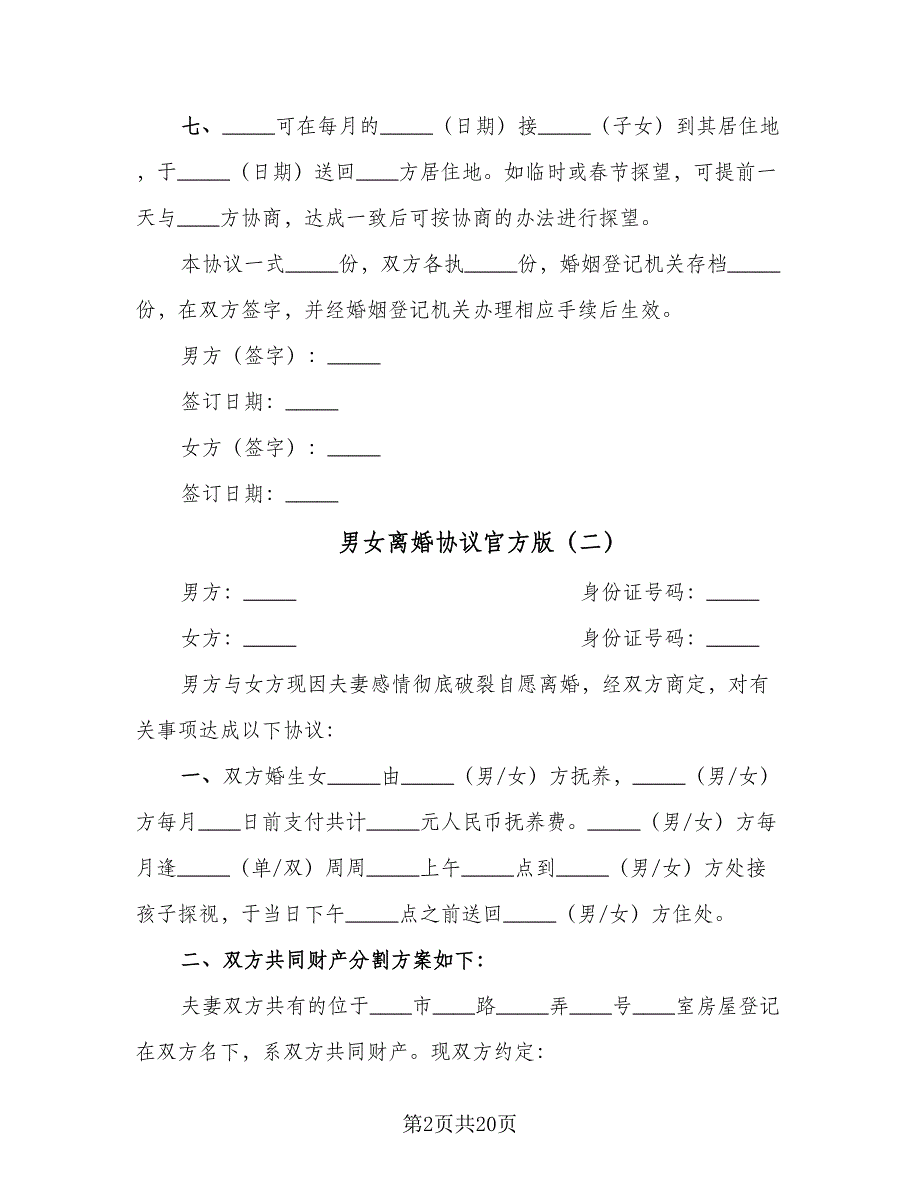 七、_____可在每月的_____（日期）接_____（子女）到其居住地
，于_____（日期）送回____方居住地。如临时或春节探望，可提前一
天与____方协商，达成一致后可按协商的办法进行探望。
本协议一式_____份，双方各执_____份，婚姻登记机关存档_____
份，在双方签字，并经婚姻登记机关办理相应手续后生效。
男方（签字）：_____
签订日期：_____
女方（签字）：_____
签订日期：_____
男女离婚协议官方版（二）
男方：_____ 身份证号码：_____
女方：_____ 身份证号码：_____
男方与女方现因夫妻感情彻底破裂自愿离婚，经双方商定，对有
关事项达成以下协议：
一、双方婚生女_____由_____（男/女）方抚养，_____（男/女）
方每月____日前支付共计_____元人民币抚养费。_____（男/女）方每
月逢_____（单/双）周周_____上午_____点到_____（男/女）方处接
孩子探视，于当日下午_____点之前送回_____（男/女）方住处。
二、双方共同财产分割方案如下：
夫妻双方共有的位于____市____路_____弄____号____室房屋登记
在双方名下，系双方共同财产。现双方约定：
第2页共20页